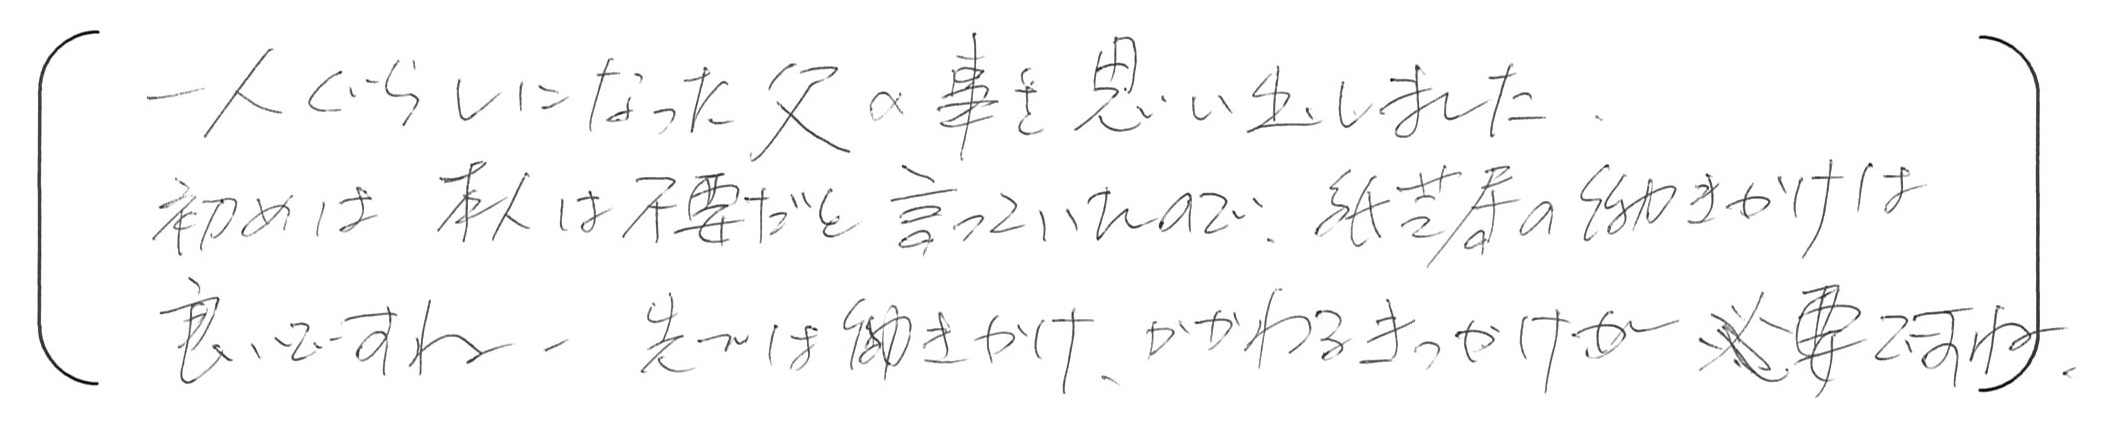 一人ぐらしになった父の事を思い出しました.
初めは 本人は不要だと言っていたので、紙芝居の働きかけは
良いですね. 先づは働きかけ、かかわるきっかけが必要ですね.